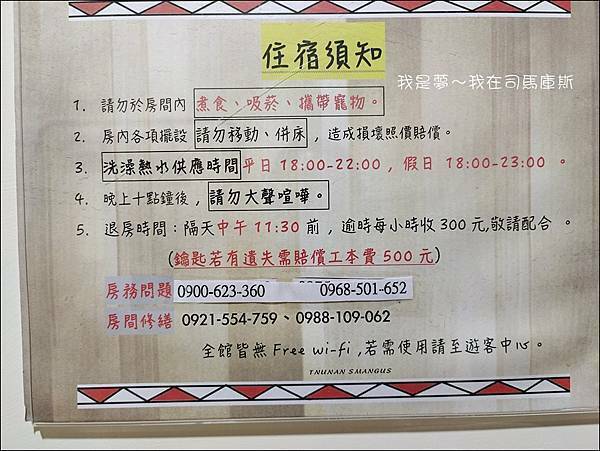 住宿須知
我是夢～我在司馬庫斯
1. 請勿於房間內 煮食、吸菸、攜帶寵物。
2. 房內各項擺設 請勿移動、併床 , 造成損壞照價賠償。
3. 洗澡熱水供應時間平日 18:00-22:00 , 假日 18:00-23:00 。
4. 晚上十點鐘後 , 請勿大聲喧嘩。
5. 退房時間：隔天中午 11:30 前 , 逾時每小時收 300 元,敬請配合 。
(鑰匙若有遺失需賠償工本費 500 元)
房務問題 0900-623-360 0968-501-652
房間修繕 0921-554-759、0988-109-062
全館皆無 Free wi-fi ,若需使用請至遊客中心。
TNUNAN SMANGUS